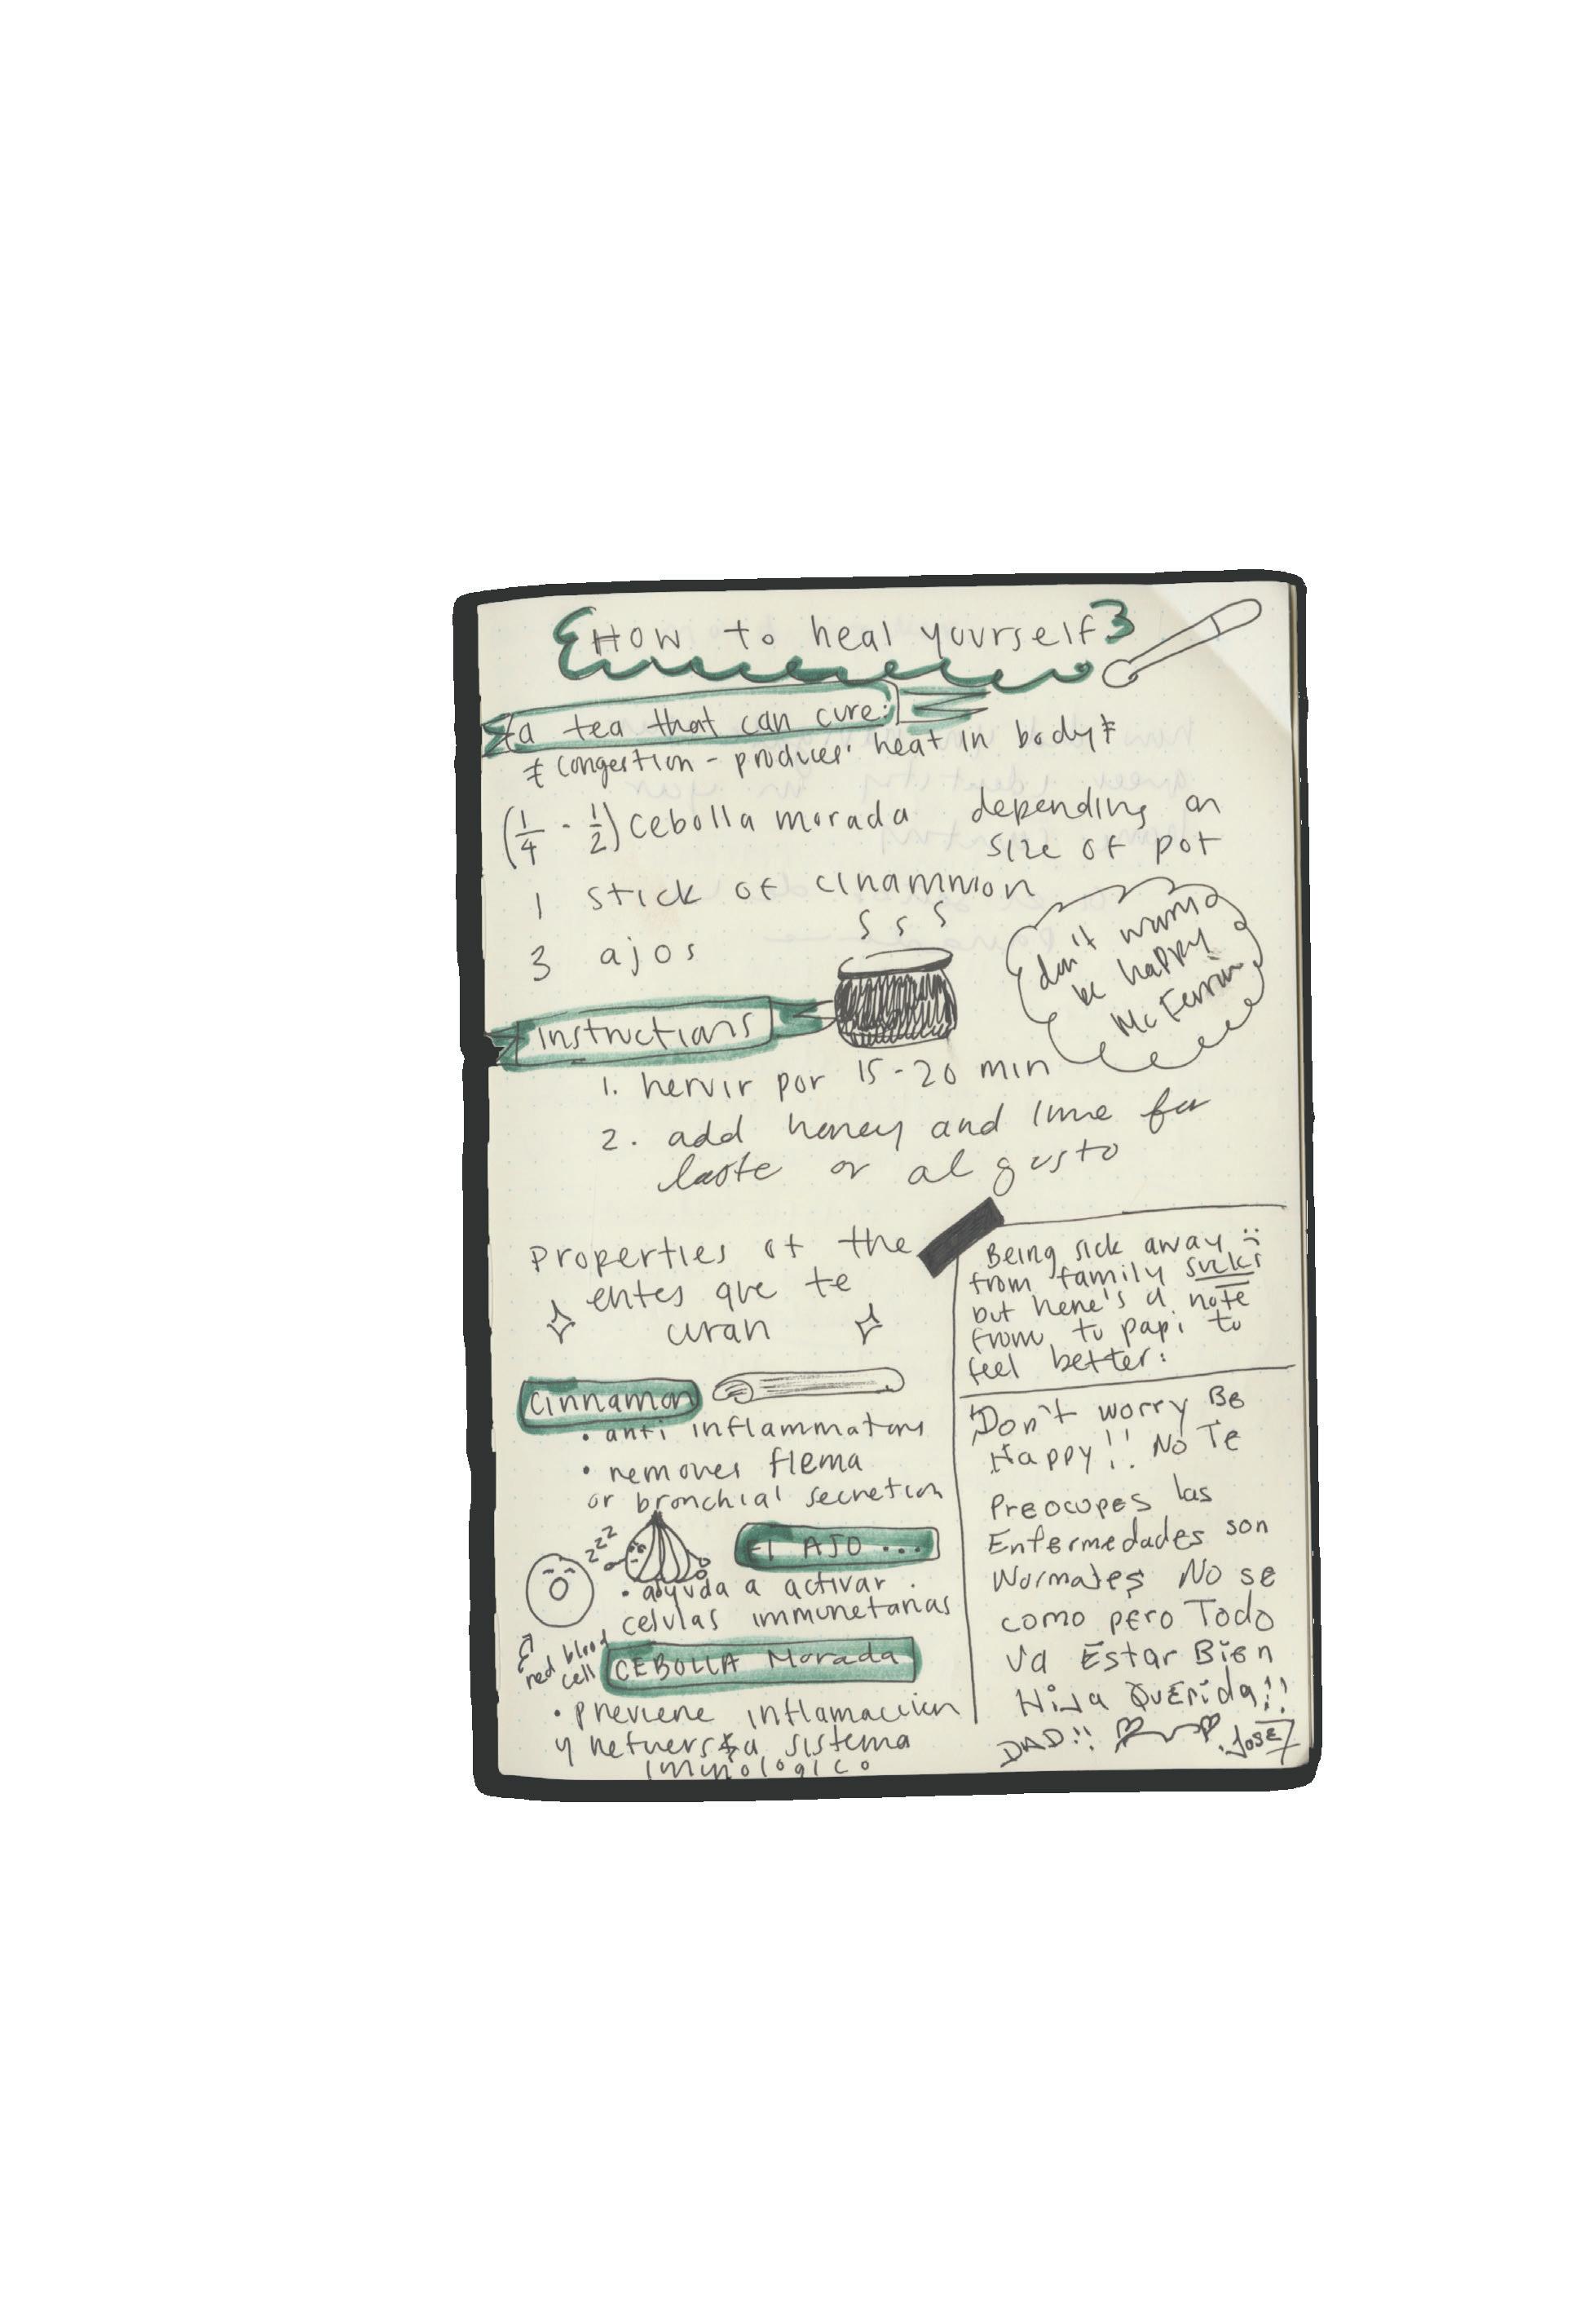 How to heal yourself
a tea that can cure:
congestion - produces heat in body
(1/4 - 1/2) cebolla morada depending on
size of pot
1 stick of cinammion
3 ajos
don't worry
be happy
McFerrin
Instructions
1. hervir por 15-20 min
2. add honey and lime for
taste or al gusto
Properties of the
entes que te
curan
Being sick away :(
from family sucks
but here's a note
from tu papi to
feel better:
Cinnamon
• anti inflammatory
• removes flema
or bronchial secretion
zzz
El AJO ...
• ayuda a activar
celulas immunetarias
red blood
cell
CEBOLLA Morada
• previene inflamacion
y refuersa sistema
imunologico
Don't worry Be
Happy!! No Te
Preocupes las
Enfermedades son
Normales No se
como pero Todo
va Estar Bien
Hija Querida!!
DAD!! Jose